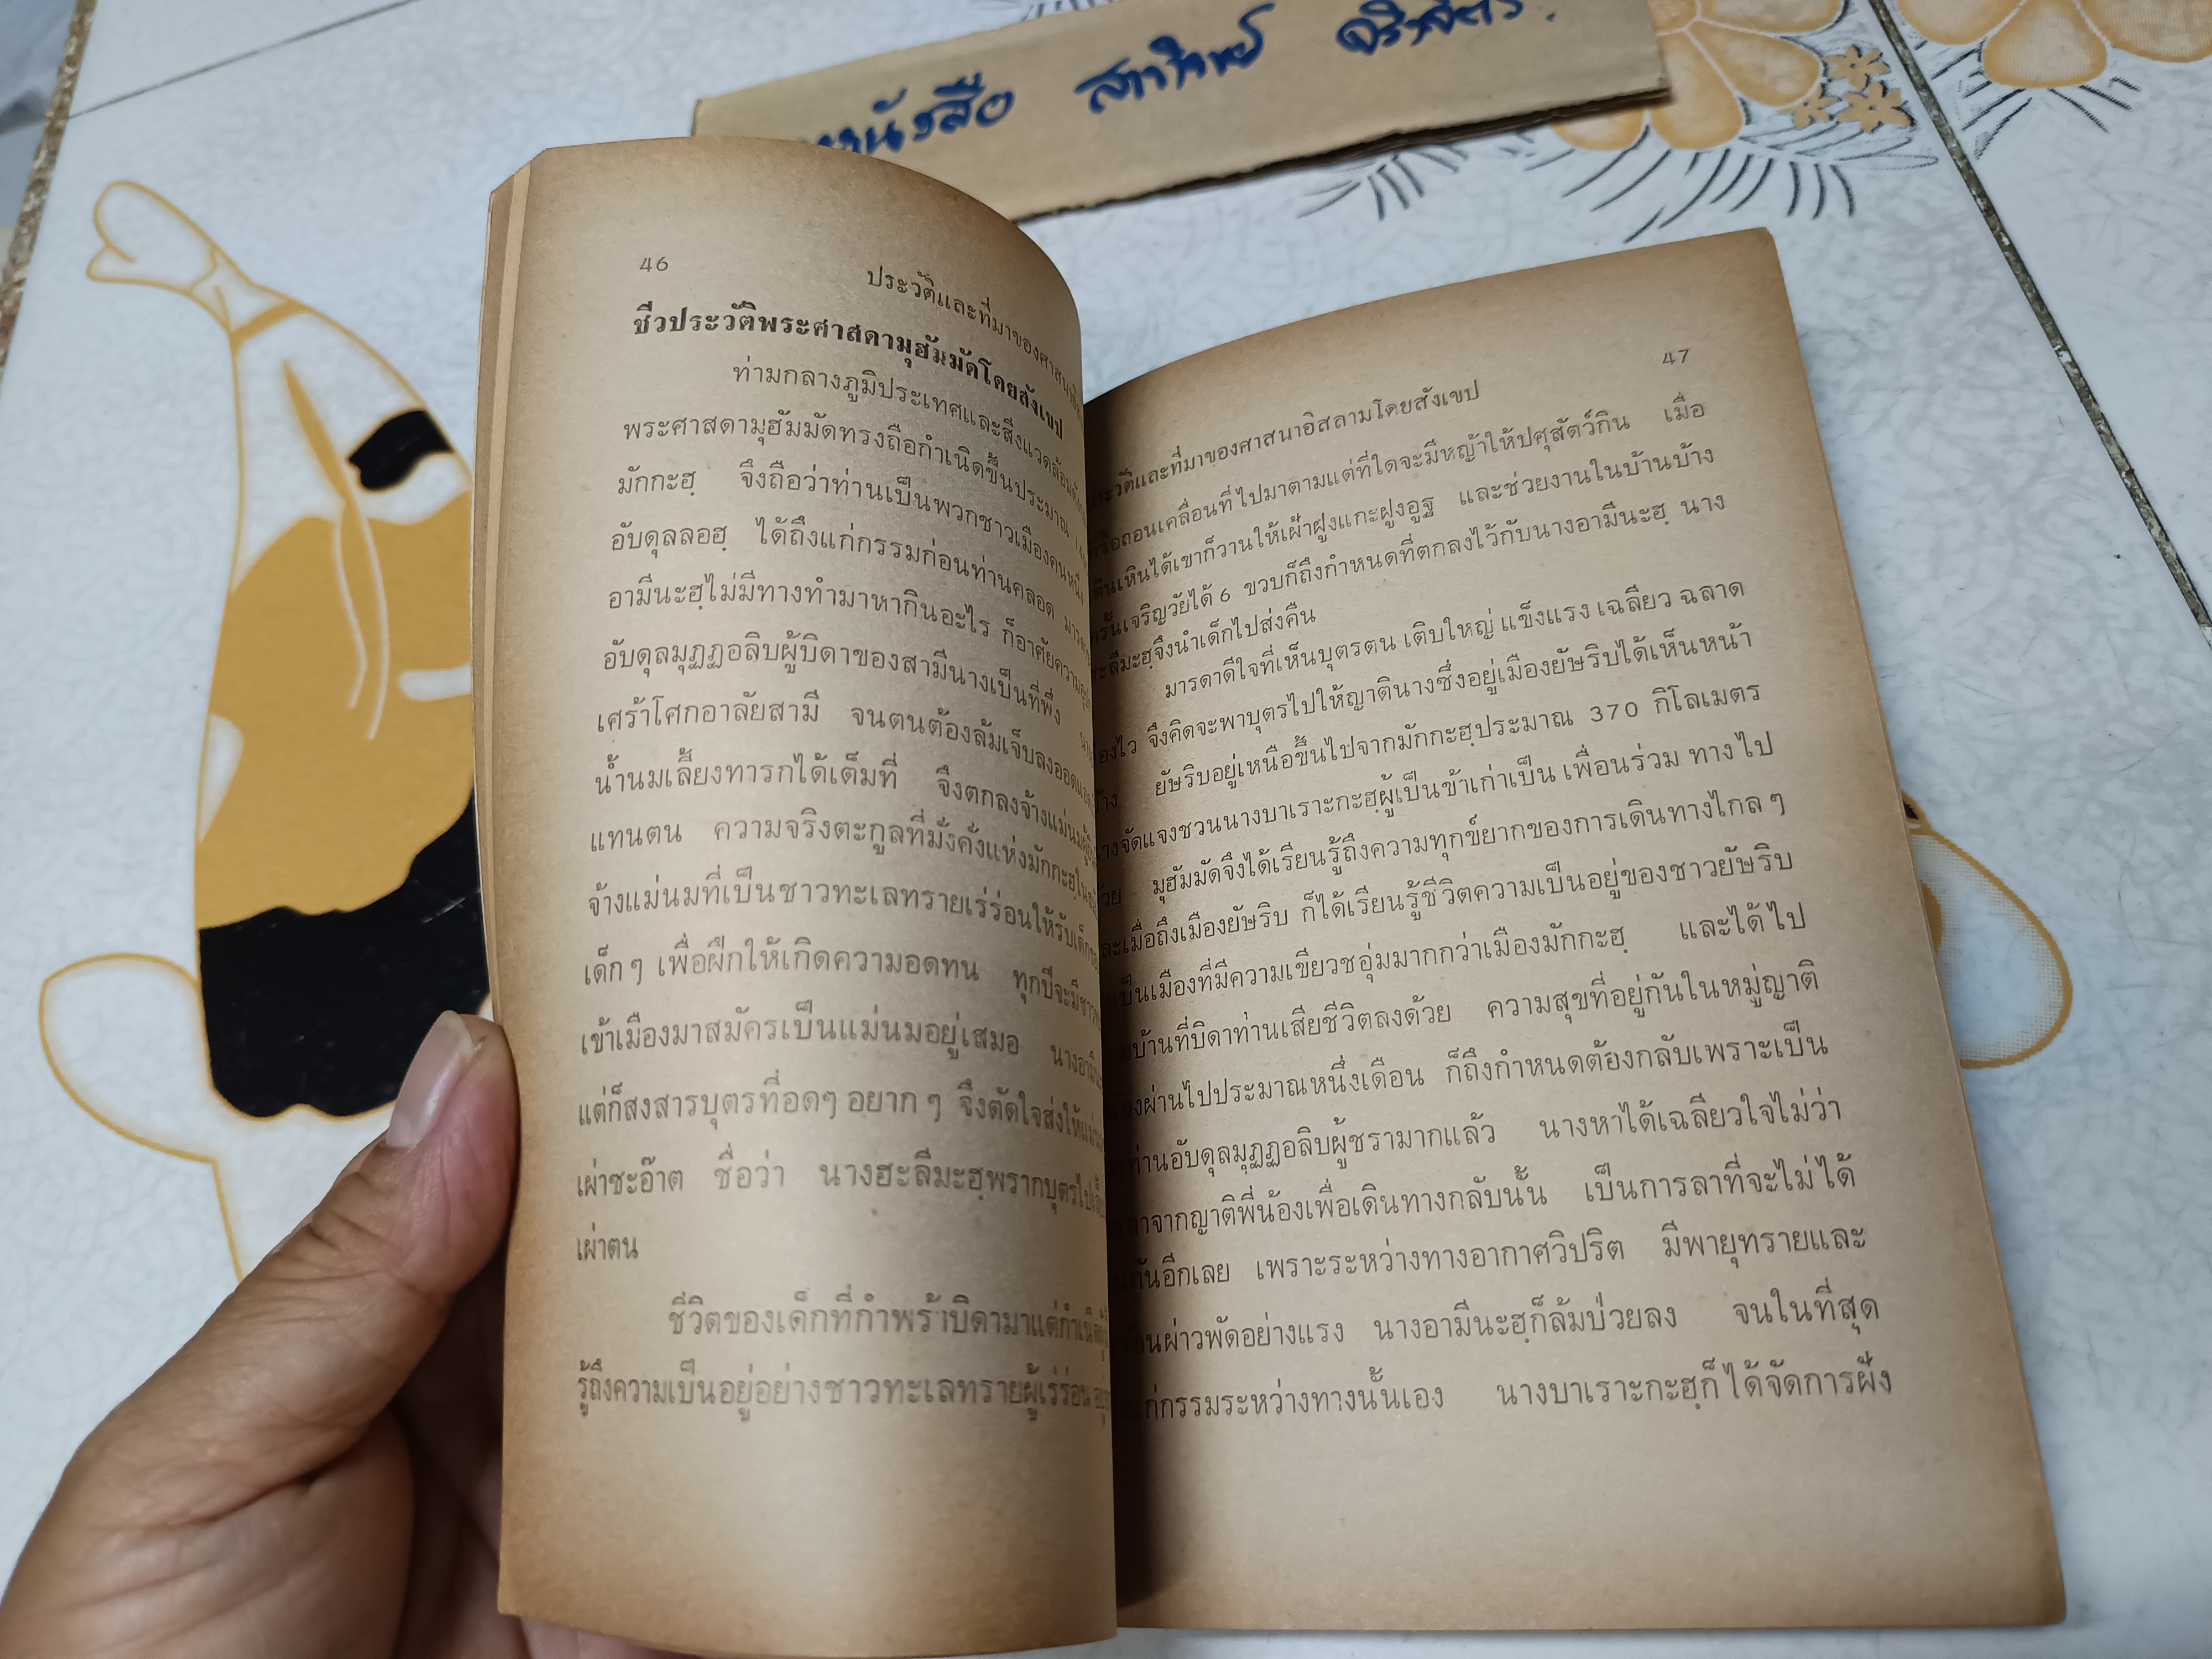 หนังสือ
46
ประวัติและที่มาของศาสนา
ชีวประวัติพระศาสดามุฮัมมัดโดยสังเขป
ท่ามกลางภูมิประเทศและสิ่งแวดล้อม
พระศาสดามุฮัมมัดทรงถือกำเนิดขึ้นประมาณ
มักกะฮฺ จึงถือว่าท่านเป็นพวกชาวเมืองคนหนึ่ง
อับดุลลอฮฺ ได้ถึงแก่กรรมก่อนท่านคลอด มารดา
อามีนะฮฺไม่มีทางทำมาหากินอะไร ก็อาศัยความ
อับดุลมุฏฏอลิบผู้บิดาของสามีนางเป็นที่พึ่ง
เศร้าโศกอาลัยสามี จนตนต้องล้มเจ็บลงออดแอด
น้ำนมเลี้ยงทารกได้เต็มที่ จึงตกลงจ้างแม่นม
แทนตน ความจริงตะกูลที่มั่งคั่งแห่งมักกะฮฺ
จ้างแม่นมที่เป็นชาวทะเลทรายเร่ร่อนให้รับเด็ก
เด็กๆ เพื่อฝึกให้เกิดความอดทน ทุกปีจะมี
เข้าเมืองมาสมัครเป็นแม่นมอยู่เสมอ
แต่ก็สงสารบุตรที่อดๆ อยากๆ จึงตัดใจส่งให้
เผ่าซะอ๊าต ชื่อว่า นางฮะลีมะฮฺพรากบุตรไป
เผ่าตน
ชีวิตของเด็กที่กำพร้าบิดามาแต่กำเนิด
รู้ถึงความเป็นอยู่อย่างชาวทะเลทรายผู้เร่ร่อน
47
และที่มาของศาสนาอิสลามโดยสังเขป
ถอนเคลื่อนที่ไปมาตามแต่ที่ใดจะมีหญ้าให้ปศุสัตว์กิน เมื่อ
เดินเหินได้เขาก็วานให้เฝ้าฝูงแกะฝูงอูฐ และช่วยงานในบ้านบ้าง
ครั้นเจริญวัยได้ 6 ขวบก็ถึงกำหนดที่ตกลงไว้กับนางอามีนะฮฺ นาง
ฮะลีมะฮฺจึงนำเด็กไปส่งคืน
มารดาดีใจที่เห็นบุตรตน เติบใหญ่ แข็งแรง เฉลียว ฉลาด
จึงคิดจะพาบุตรไปให้ญาตินางซึ่งอยู่เมืองยัษริบได้เห็นหน้า
ยัษริบอยู่เหนือขึ้นไปจากมักกะฮฺประมาณ 370 กิโลเมตร
จัดแจงชวนนางบาเราะกะฮฺผู้เป็นข้าเก่าเป็น เพื่อนร่วม ทางไป
มุฮัมมัดจึงได้เรียนรู้ถึงความทุกข์ยากของการเดินทางไกลๆ
และเมื่อถึงเมืองยัษริบ ก็ได้เรียนรู้ชีวิตความเป็นอยู่ของชาวยัษริบ
เป็นเมืองที่มีความเขียวชอุ่มมากกว่าเมืองมักกะฮฺ และได้ไป
บ้านที่บิดาท่านเสียชีวิตลงด้วย ความสุขที่อยู่กันในหมู่ญาติ
ผ่านไปประมาณหนึ่งเดือน ก็ถึงกำหนดต้องกลับเพราะเป็น
ท่านอับดุลมุฏฏอลิบผู้ชรามากแล้ว นางหาได้เฉลียวใจไม่ว่า
ลาจากญาติพี่น้องเพื่อเดินทางกลับนั้น เป็นการลาที่จะไม่ได้
กันอีกเลย เพราะระหว่างทางอากาศวิปริต มีพายุทรายและ
ผ่าวพัดอย่างแรง นางอามีนะฮฺก็ล้มป่วยลง จนในที่สุด
แก่กรรมระหว่างทางนั้นเอง นางบาเราะกะฮฺก็ได้จัดการฝัง